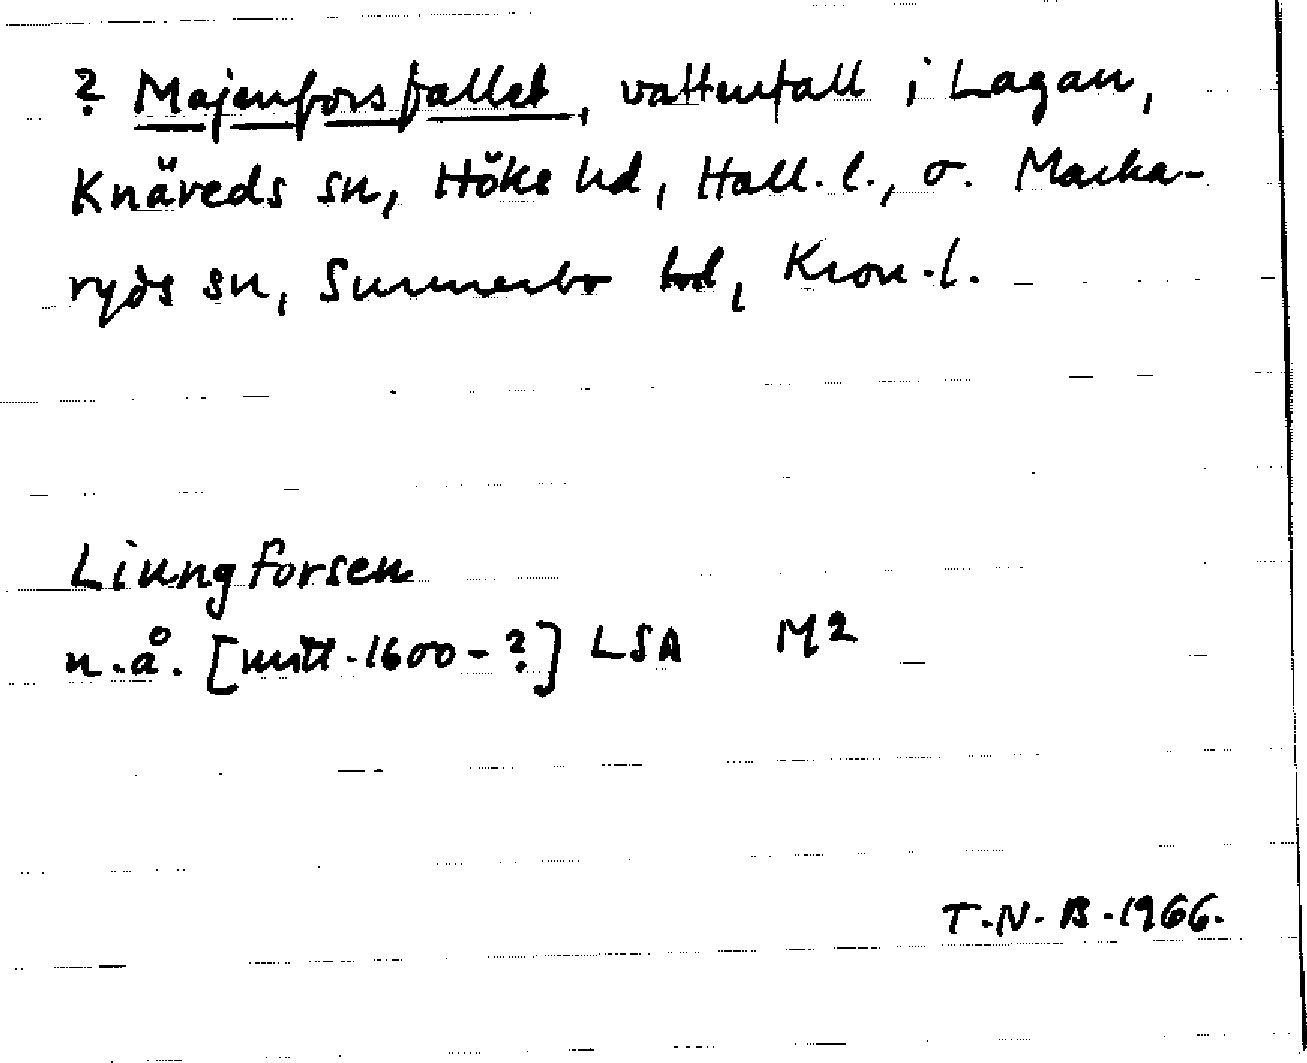 ? Majenforsfallet, vattenfall i Lagan,
Knäreds sn, Höks hd, Hall. l., o. Marka-
ryds sn, Sunnerbo hd, Kron. l.
Liungforsen
n.å. [mitt. 1600-?] LSA M2
T.N.B. 1966.